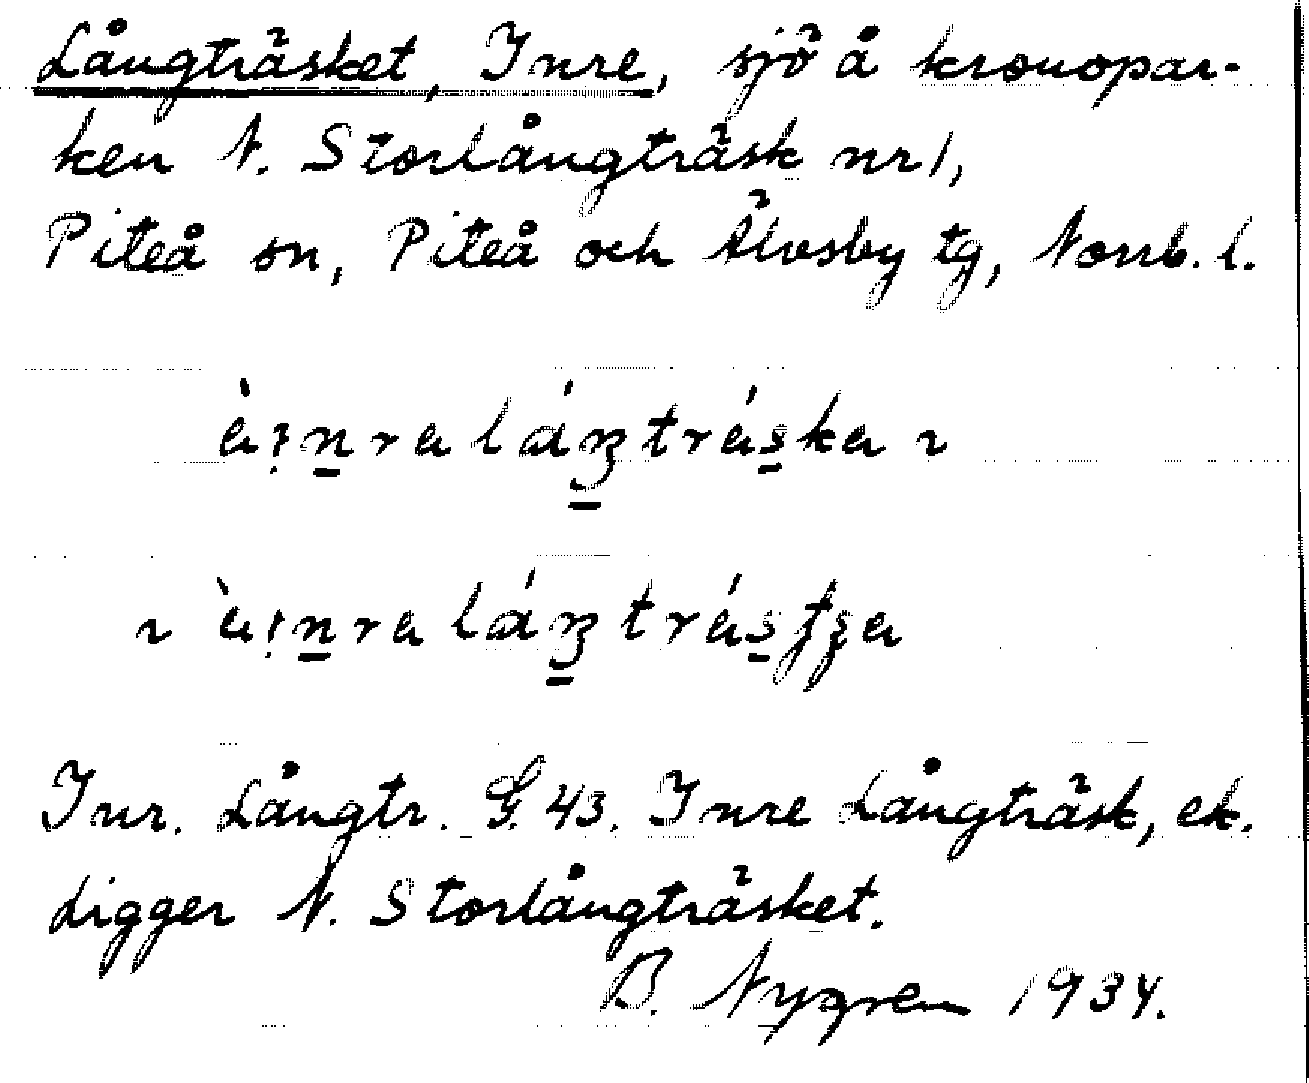 Långträsket, Inre, sjö å kronopar-
ken N. Storlångträsk nr 1,
Piteå sn, Piteå och Älvsby tg, Norrb. l.
Inr. Långtr. G. 43. Inre Långträsk, ek.
Ligger N. Storlångträsket.
B. Nygren 1934.